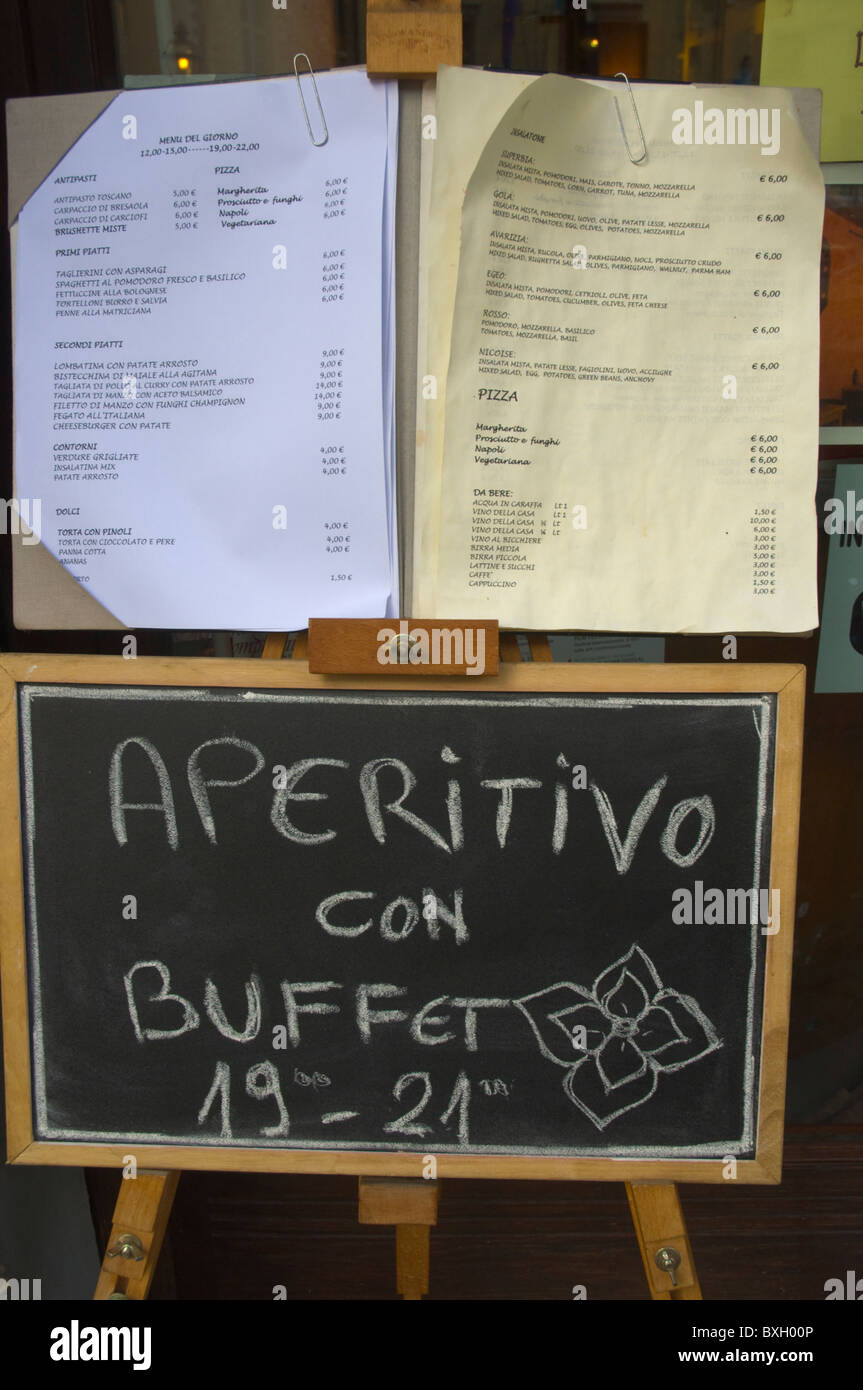 MENU DEL GIORNO
12,00-15,00------19,00-22,00
ANTIPASTI
ANTIPASTO TOSCANO 5,00 €
CARPACCIO DI BRESAOLA 6,00 €
CARPACCIO DI CARCIOFI 6,00 €
BRUSHETTE MISTE 5,00 €
PIZZA
Margherita 6,00 €
Prosciutto e funghi 6,00 €
Napoli 6,00 €
Vegetariana 6,00 €
PRIMI PIATTI
TAGLIERINI CON ASPARAGI 6,00 €
SPAGHETTI AL POMODORO FRESCO E BASILICO 6,00 €
FETTUCCINE ALLA BOLOGNESE 6,00 €
TORTELLONI BURRO E SALVIA 6,00 €
PENNE ALLA MATRICIANA 6,00 €
SECONDI PIATTI
LOMBATINA CON PATATE ARROSTO 9,00 €
BISTECCHINA DI MAIALE ALLA AGITANA 9,00 €
TAGLIATA DI POLLO AL CURRY CON PATATE ARROSTO 9,00 €
TAGLIATA DI MANZO CON ACETO BALSAMICO 14,00 €
FILETTO DI MANZO CON FUNGHI CHAMPIGNON 14,00 €
FEGATO ALL'ITALIANA 9,00 €
CHEESEBURGER CON PATATE 9,00 €
CONTORNI
VERDURE GRIGLIATE 4,00 €
INSALATINA MIX 4,00 €
PATATE ARROSTO 4,00 €
DOLCI
TORTA CON PINOLI 4,00 €
TORTA CON CIOCCOLATO E PERE 4,00 €
PANNA COTTA 4,00 €
ANANAS
1,50 €
INSALATONE
SUPERBIA:
INSALATA MISTA, POMODORI, MAIS, CAROTE, TONNO, MOZZARELLA € 6,00
MIXED SALAD, TOMATOES, CORN, CARROT, TUNA, MOZZARELLA
GOLA:
INSALATA MISTA, POMODORI, UOVO, OLIVE, PATATE LESSE, MOZZARELLA € 6,00
MIXED SALAD, TOMATOES, EGG, OLIVES, POTATOES, MOZZARELLA
AVARIZIA:
INSALATA MISTA, RUCOLA, OLIVE, PARMIGIANO, NOCI, PROSCIUTTO CRUDO € 6,00
MIXED SALAD, RUGHETTA SALAD, OLIVES, PARMIGIANO, WALNUT, PARMA HAM
EGEO:
INSALATA MISTA, POMODORI, CETRIOLI, OLIVE, FETA € 6,00
MIXED SALAD, TOMATOES, CUCUMBER, OLIVES, FETA CHEESE
ROSSO:
POMODORO, MOZZARELLA, BASILICO € 6,00
TOMATOES, MOZZARELLA, BASIL
NICOISE:
INSALATA MISTA, PATATE LESSE, FAGIOLINI, UOVO, ACCIUGHE € 6,00
MIXED SALAD, EGG, POTATOES, GREEN BEANS, ANCHOVY
PIZZA
Margherita € 6,00
Prosciutto e funghi € 6,00
Napoli € 6,00
Vegetariana € 6,00
DA BERE:
ACQUA IN CARAFFA Lt 1 1,50 €
VINO DELLA CASA Lt 1 10,00 €
VINO DELLA CASA ½ Lt 6,00 €
VINO DELLA CASA ¼ Lt 3,00 €
VINO AL BICCHIERE 3,00 €
BIRRA MEDIA 5,00 €
BIRRA PICCOLA 3,00 €
LATTINE E SUCCHI 3,00 €
CAFFE' 1,50 €
CAPPUCCINO 3,00 €
APERITIVO
CON
BUFFET
19°° - 21
alamy
Image ID: BXH00P
www.alamy.com